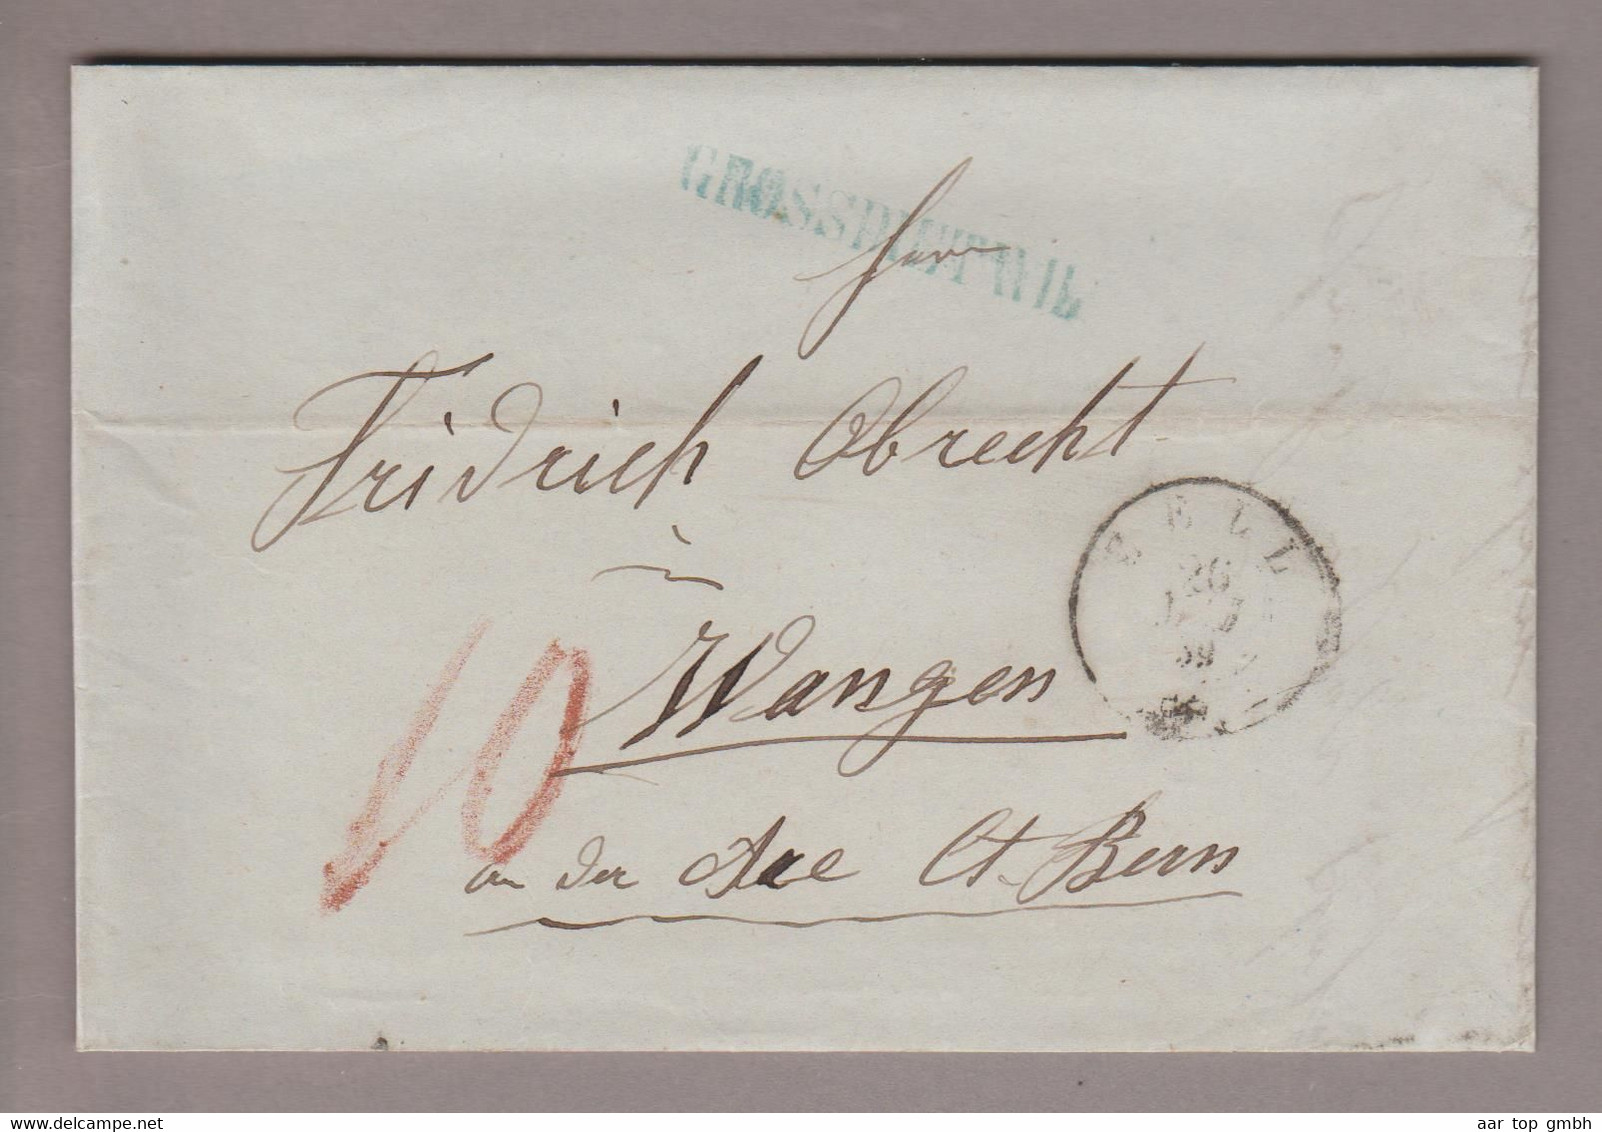 GROSSDIETWIL
Herrn
Fridrich Obrecht
in
Wangen
an der Aare Ct. Bern
10
ZELL
26
59
delcampe.net
aar top gmbh